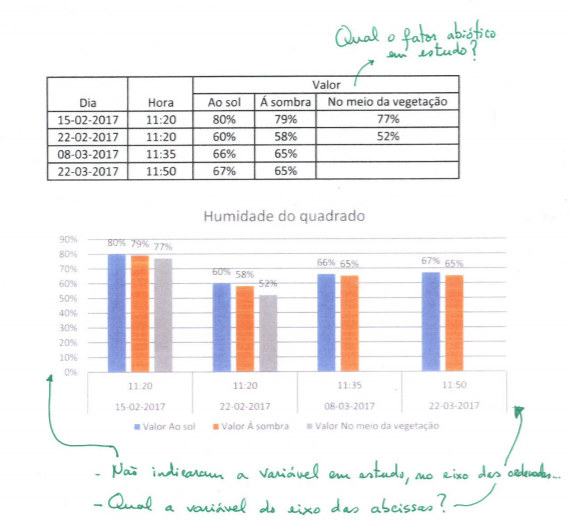 Qual o fator abiótico
em estudo?
Valor
Dia Hora Ao sol Á sombra No meio da vegetação
15-02-2017 11:20 80% 79% 77%
22-02-2017 11:20 60% 58% 52%
08-03-2017 11:35 66% 65%
22-03-2017 11:50 67% 65%
Humidade do quadrado
90%
80%
70%
60%
50%
40%
30%
20%
10%
0%
80% 79% 77%
60% 58% 52%
66% 65%
67% 65%
11:20 11:20 11:35 11:50
15-02-2017 22-02-2017 08-03-2017 22-03-2017
Valor Ao sol Valor Á sombra Valor No meio da vegetação
- Não indicaram a variável em estudo, no eixo das ordenadas...
- Qual a variável do eixo das abcissas?